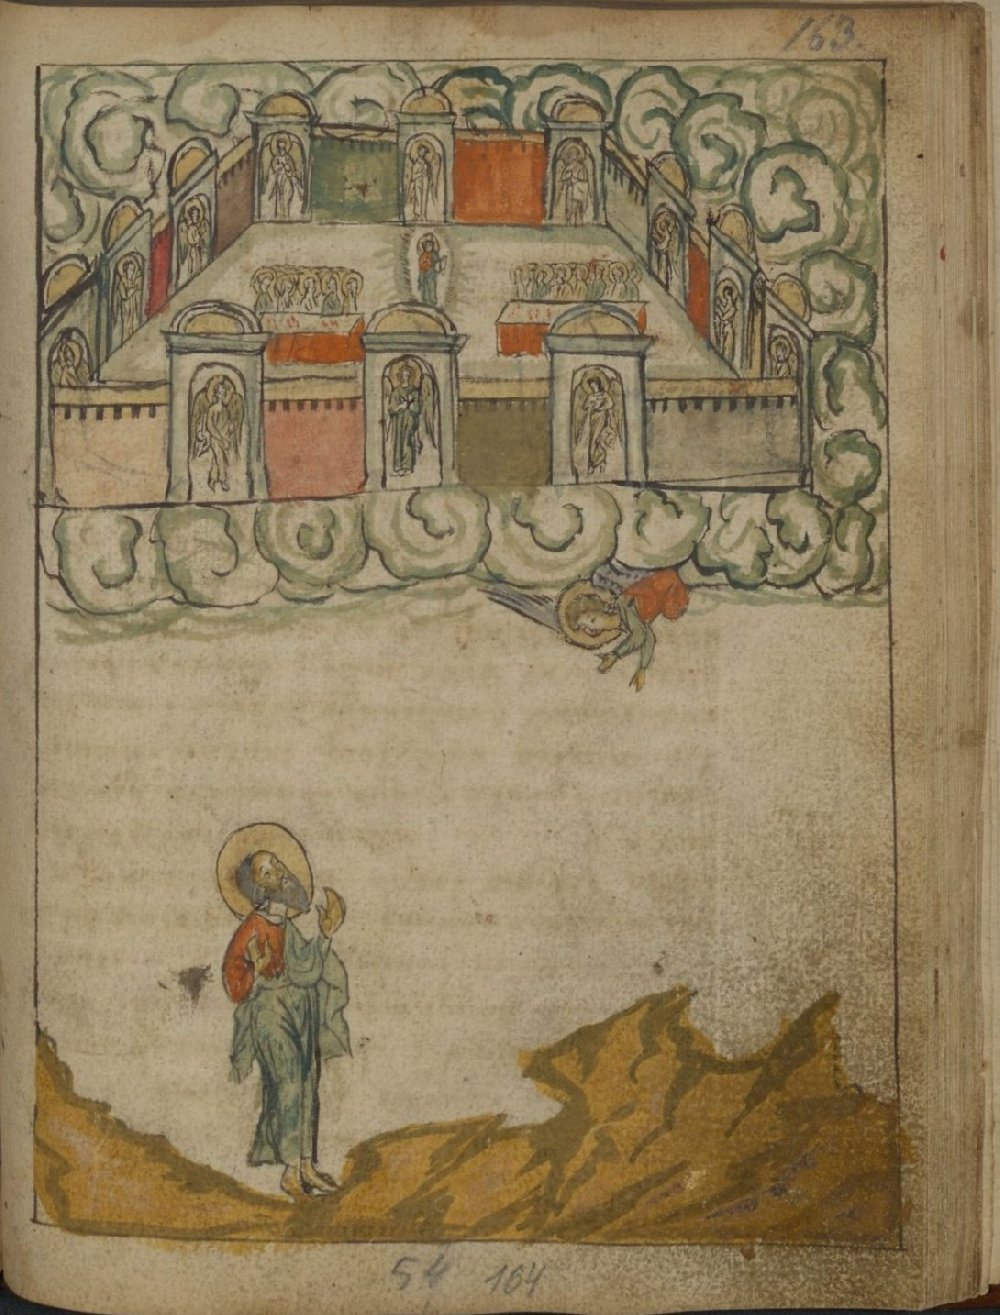 163.
54 164